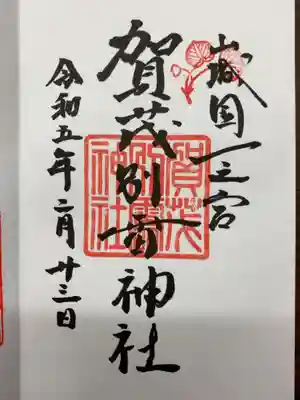 山城国一之宮
賀茂別雷神社
令和五年二月廿三日
賀茂別雷神社